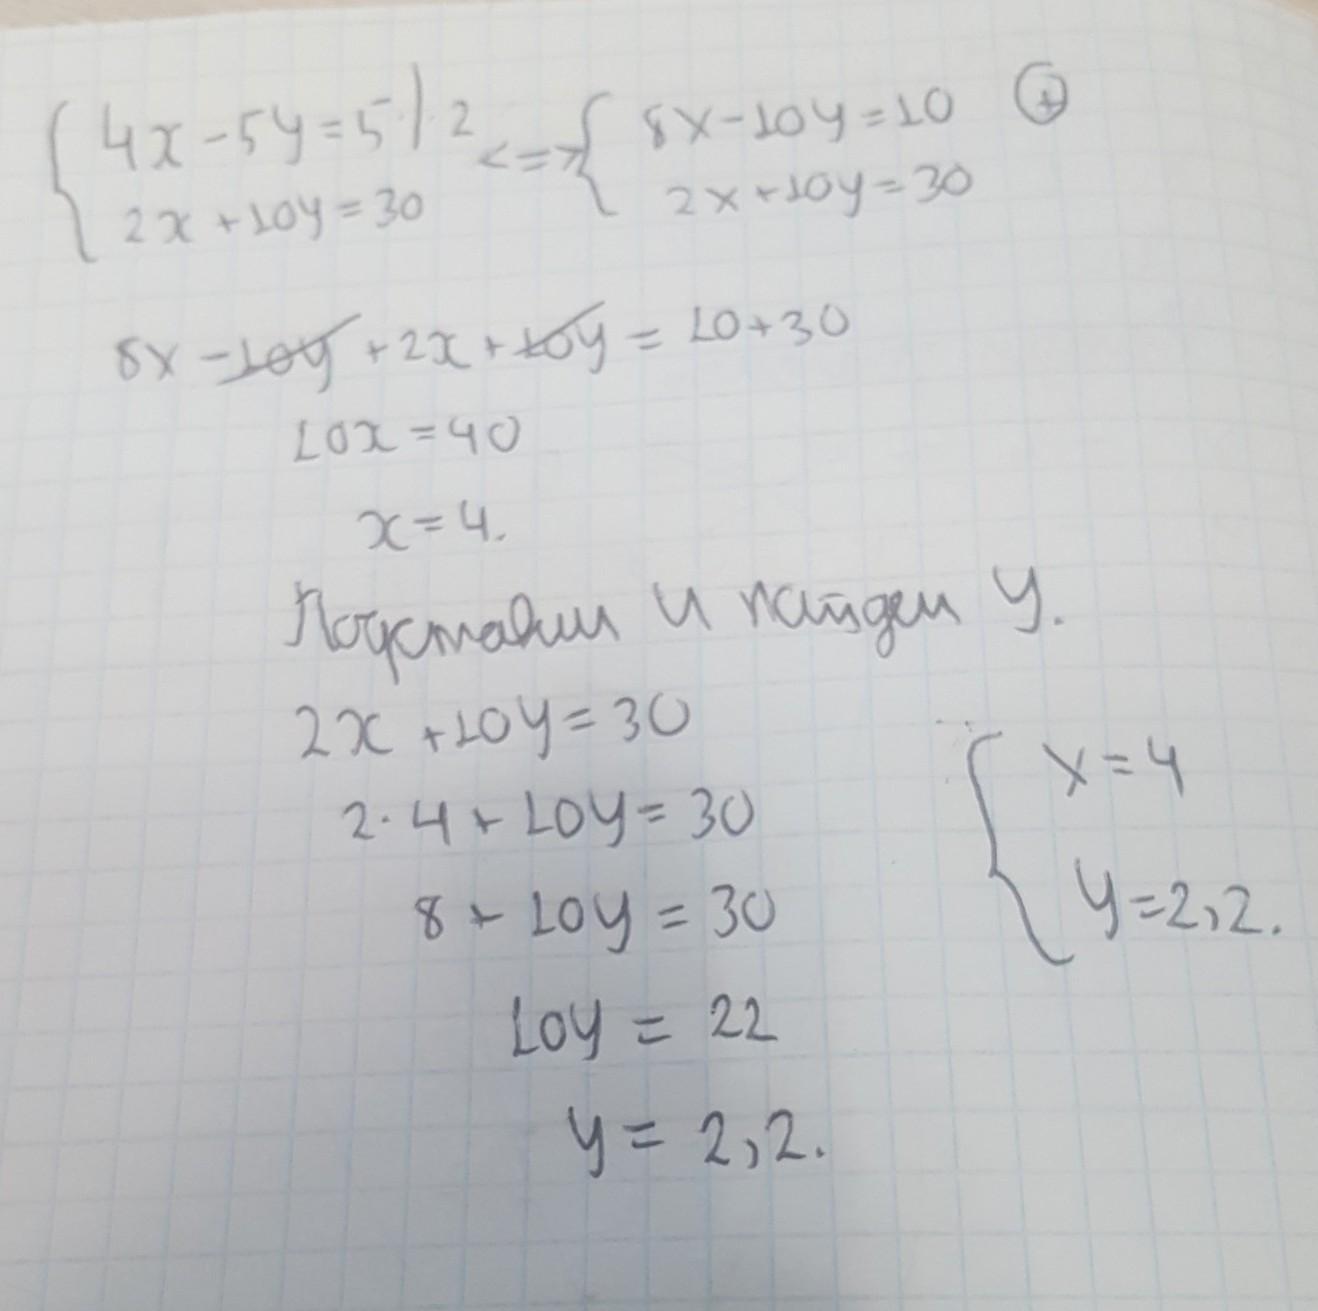 { 4x - 5y = 5 | · 2 <=> { 8x - 10y = 10 ⊕
2x + 10y = 30 2x + 10y = 30
8x - 10y + 2x + 10y = 10 + 30
10x = 40
x = 4.
Подставим и найдем y.
2x + 10y = 30
2 · 4 + 10y = 30
8 + 10y = 30
10y = 22
y = 2,2.
{ x = 4
y = 2,2.